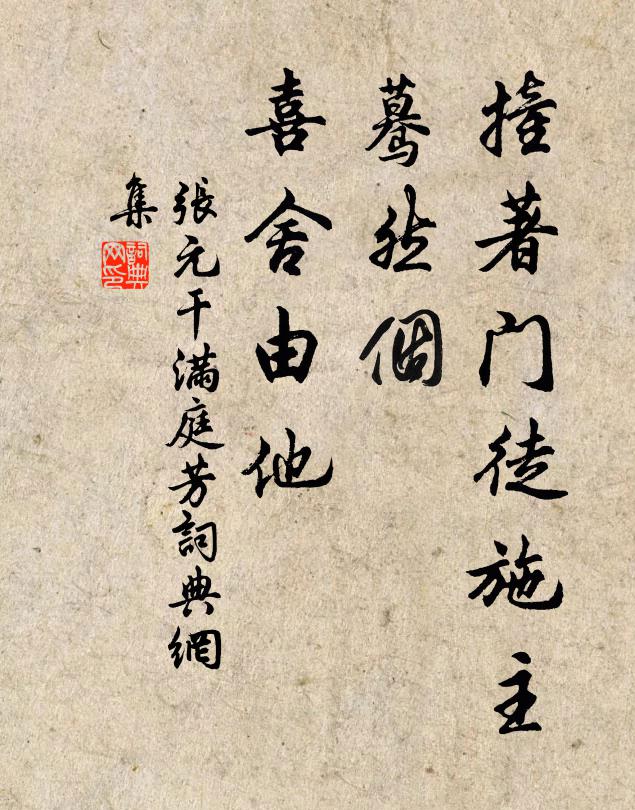 撞著門徒施主
驀然個
喜舍由他
張元干滿庭芳詞典網
集
詞典
网印